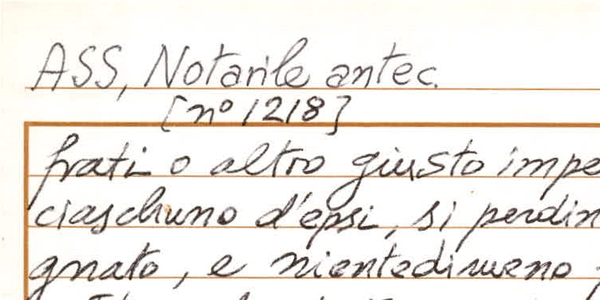 ASS, Notarile antec.
[nº 1218]
frati o altro giusto impe
ciaschuno d'epsi, si perdin
gnato, e nientedimeno